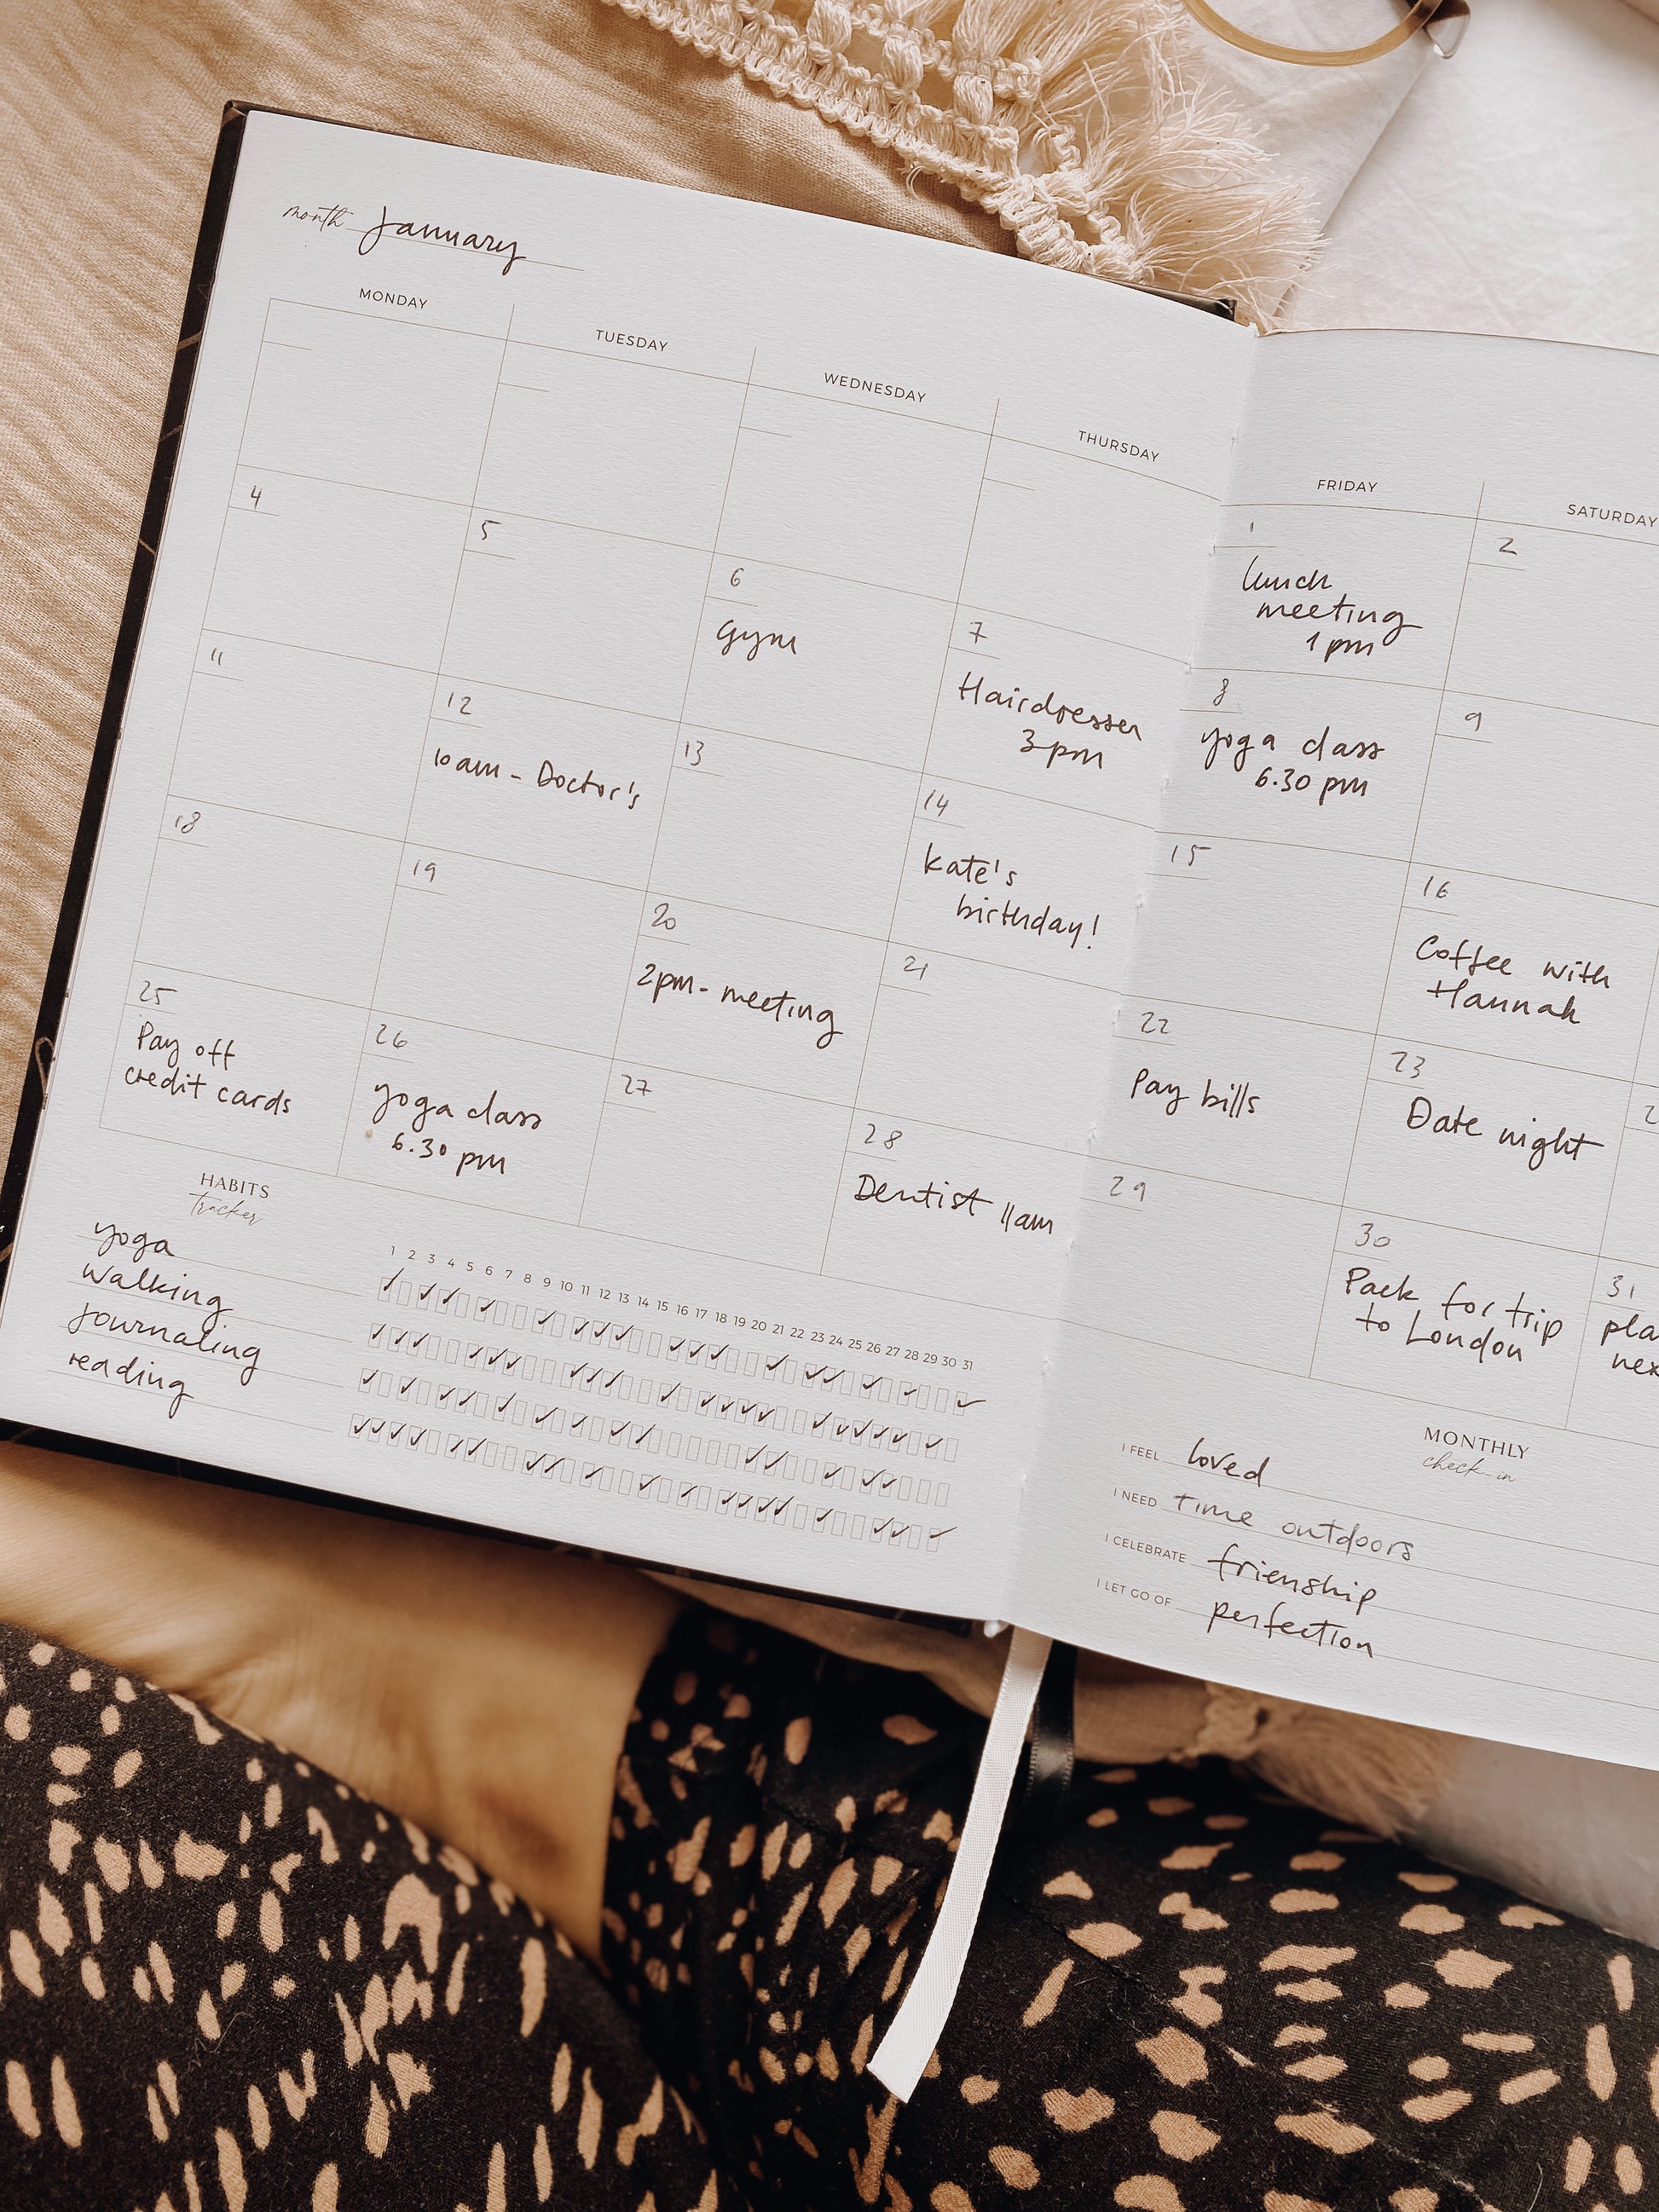 month January
MONDAY
TUESDAY
WEDNESDAY
THURSDAY
FRIDAY
SATURDAY
1
lunch
meeting
1 pm
2
4
5
6
Gym
7
Hairdresser
3pm
8
yoga class
6.30 pm
9
11
12
10am - Doctor's
13
14
Kate's
birthday!
15
16
Coffee with
Hannah
18
19
20
2pm - meeting
21
22
Pay bills
23
Date night
25
Pay off
credit cards
26
yoga class
6.30 pm
27
28
Dentist 11am
29
30
Pack for trip
to London
31
HABITS
tracker
1 2 3 4 5 6 7 8 9 10 11 12 13 14 15 16 17 18 19 20 21 22 23 24 25 26 27 28 29 30 31
yoga
walking
journaling
reading
MONTHLY
check-in
I FEEL loved
I NEED time outdoors
I CELEBRATE frienship
I LET GO OF perfection